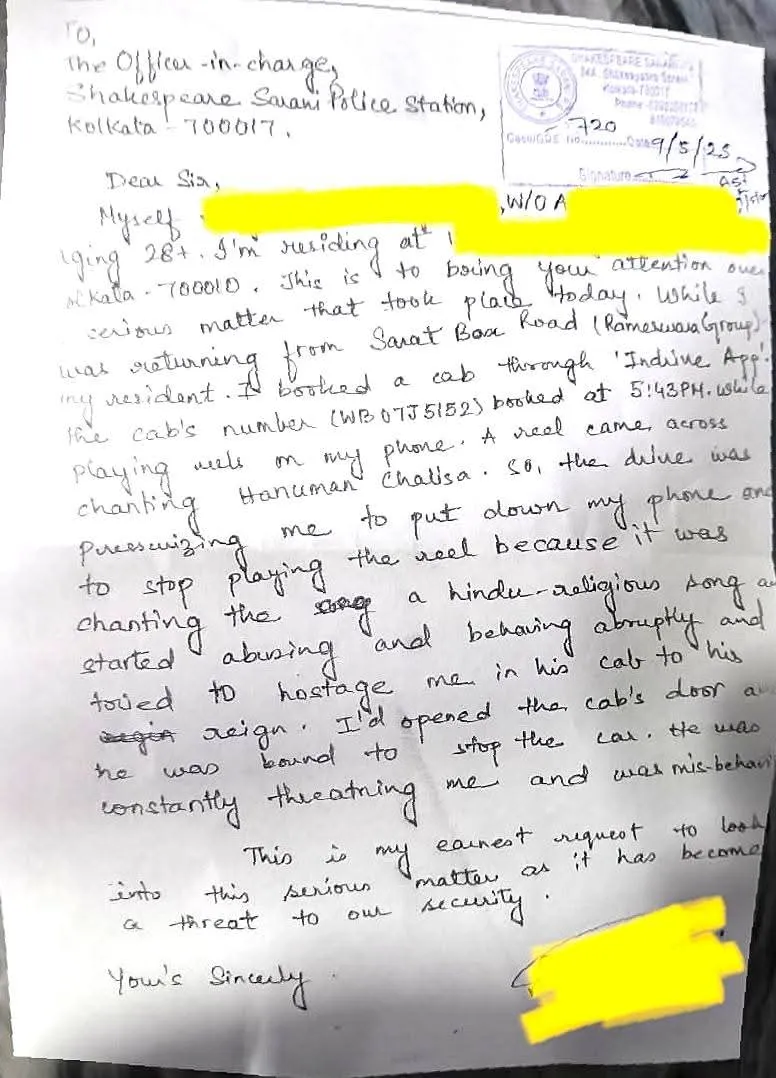 To,
The Officer-in-charge,
Shakespeare Sarani Police Station,
Kolkata - 700017.
SHAKESPEARE SARANI
Kolkata-700017
Phone
720
9/5/25
Signature
ASI
Dear Sir,
Myself , W/O A
ging 28+. I'm residing at
olkata - 700010. This is to bring your attention over
serious matter that took place today. While I
was returning from Sarat Bose Road (Rameswara Group)
my resident. I booked a cab through 'Indrive App'.
the cab's number (WB07J5152) booked at 5:43PM. while
playing reels on my phone. A reel came across
chanting Hanuman Chalisa. So, the drive was
me to put down my phone and
to stop playing the reel because it was
chanting the song a hindu-religious song a
started abusing and behaving abruptly and
tried to hostage me in his cab to his
reign. I'd opened the cab's door a
he was bound to stop the car. He was
constantly threatning me and was mis-behavi
This is my earnest request to look
into this serious matter as it has become
a threat to our security.
Your's Sincerly